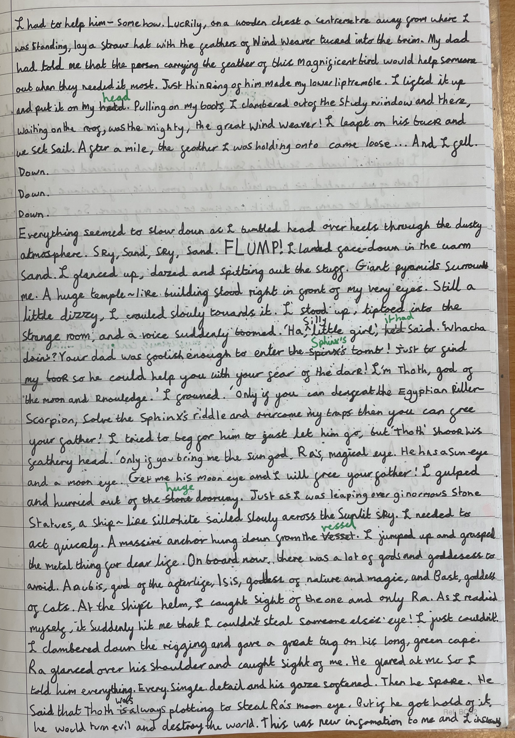 I had to help him - somehow. Luckily, on a wooden chest a centremetre away from where I
was standing, lay a straw hat with the feathers of Wind Weaver tucked into the brim. My dad
had told me that the person carrying the feather of this Magnisicent bird would help someone
out when they needed it most. Just thinking of him made my lower lip tremble. I lifted it up
and put it on my head. Pulling on my boots, I clambered out of the study window and there,
waiting on the roof, was the mighty, the great Wind Weaver! I leapt on his back and
we set sail. After a mile, the feather I was holding onto came loose... And I fell.
Down.
Down.
Down.
Everything seemed to slow down as I tumbled head over heels through the dusty
atmosphere. Sky, Sand, Sky, Sand. FLUMP! I landed face-down in the warm
sand. I glanced up, dazed and spitting out the stuff. Giant pyramids surrounded
me. A huge temple-like building stood right in front of my very eyes. Still a
little dizzy, I crawled slowly towards it. I stood up, tiptoed into the
strange room, and a voice suddenly boomed. 'Ha, silly little girl,' it had said. Whacha
doin? Your dad was foolish enough to enter the Sphinx's tomb! Just to find
my book so he could help you with your fear of the dark! I'm Thoth, god of
the moon and knowledge.' I groaned. 'Only if you can defeat the Egyptian Killer
Scorpion, solve the Sphinx's riddle and overcome my traps then you can free
your father! I tried to beg for him to just let him go, but Thoth shook his
feathery head. 'Only if you bring me the sun god, Ra's, magical eye. He has a sun eye
and a moon eye. Get me his moon eye and I will free your father! I gulped
and hurried out of the huge stone doorway. Just as I was leaping over ginormous stone
statues, a ship-like sillohite sailed slowly across the sunlit sky. I needed to
act quickly. A massive anchor hung down from the vessel. I jumped up and grasped
the metal thing for dear life. On board now, there was a lot of gods and goddesses to
avoid. Anubis, god of the afterlife, Isis, godess of nature and magic, and Bast, goddess
of cats. At the ship's helm, I caught sight of the one and only Ra. As I readid
myself, it suddenly hit me that I couldn't steal someone elses' eye! I just couldn't.
I clambered down the rigging and gave a great tug on his long, green cape.
Ra glanced over his shoulder and caught sight of me. He glared at me so I
told him everything. Every single detail and his gaze softened. Then he spoke. He
said that Thoth was always plotting to steal Ra's moon eye. But if he got hold of it,
he would turn evil and destroy the world. This was new information to me and I